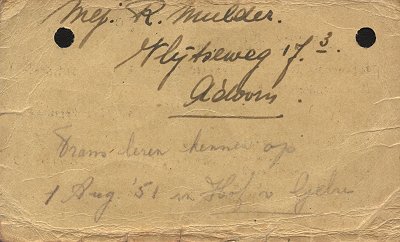 Mej. R. Mulder.
Vlijtseweg 17.3.
A'doorn.
Frans leren kennen op
1 Aug. '51 in Hof v Gelre